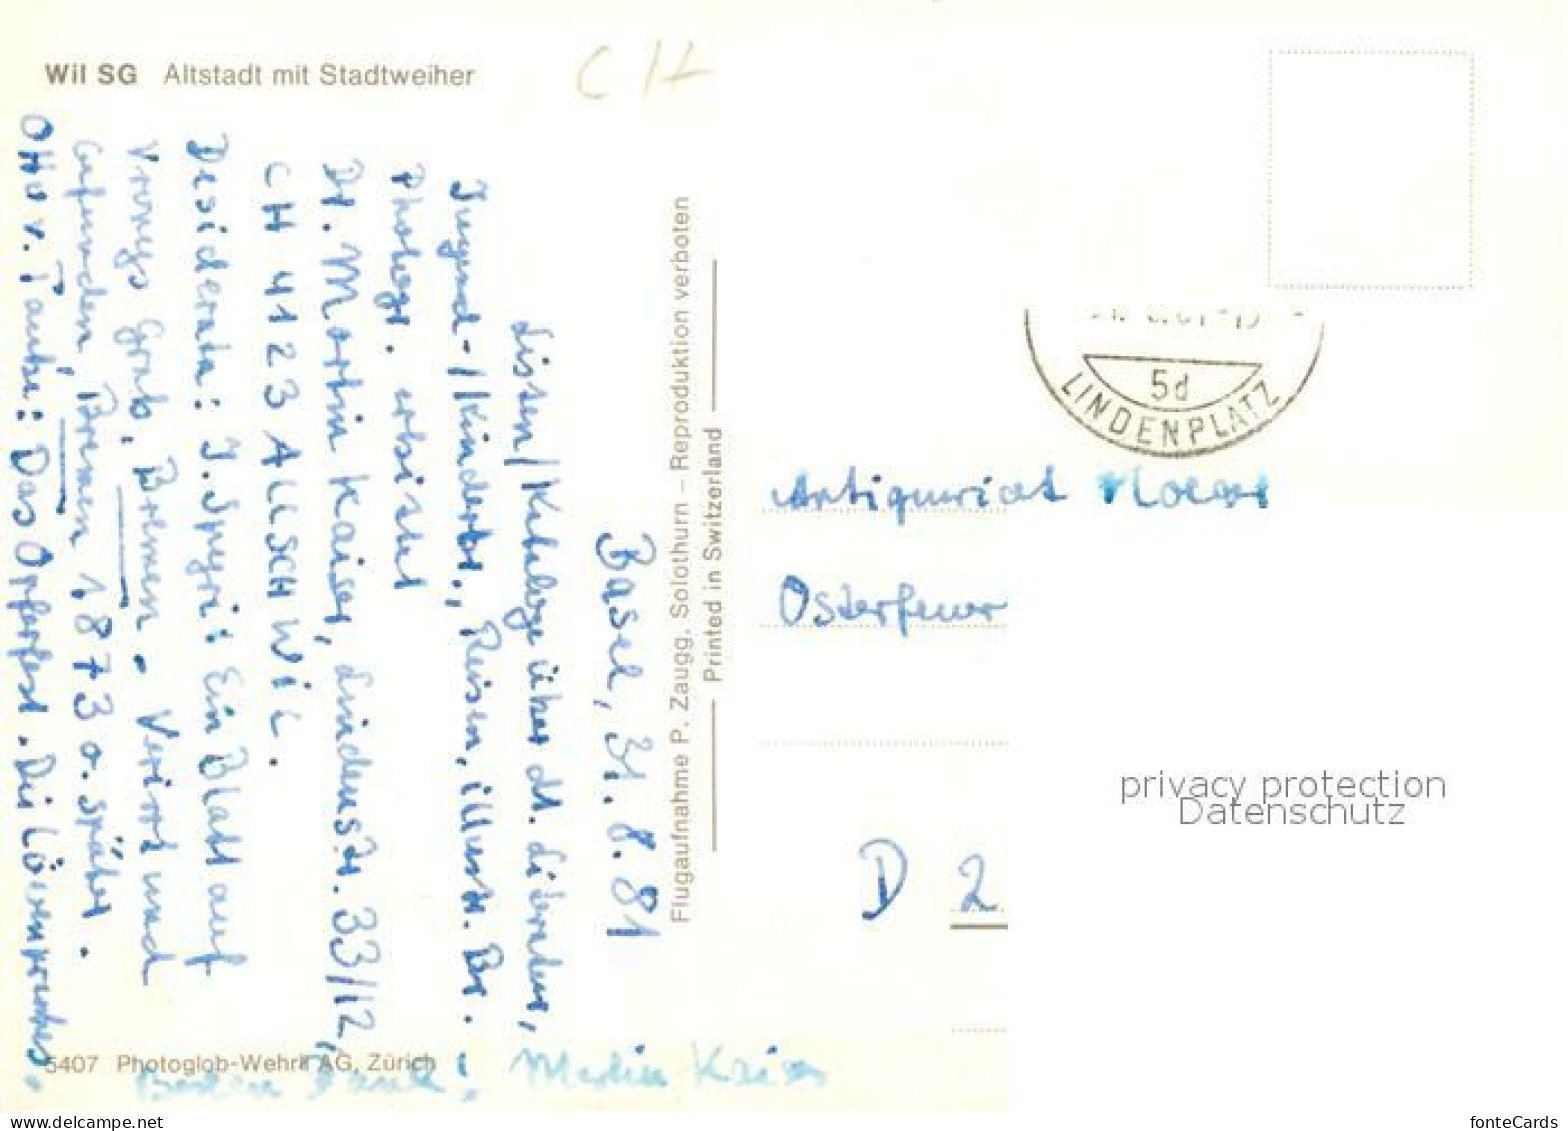 Wil SG Altstadt mit Stadtweiher
CH
Basel, 31. 8. 81
Listen/Kataloge über dt. Literatur,
Jugend-/Kinderb., Reisen, illustr. Br. -
Photogr. erbittet
Dr. Martin Kaiser, Lindenstr. 33/12,
CH 4123 ALLSCHWIL.
Desiderata: J. Spyri: Ein Blatt auf
Vrony's Grab, Bremen. Verirrt und
Gefunden, Bremen 1873 o. später.
Otto v. Taube: Das Opferfest. Die Löwenprankes.
Besten Dank. Martin Kaiser
5407 Photoglob-Wehrli AG, Zürich
Flugaufnahme P. Zaugg, Solothurn – Reproduktion verboten
Printed in Switzerland
5d
LINDENPLATZ
Antiquariat
Osterfeuer
D 2
privacy protection
Datenschutz
www.delcampe.net
fonteCards